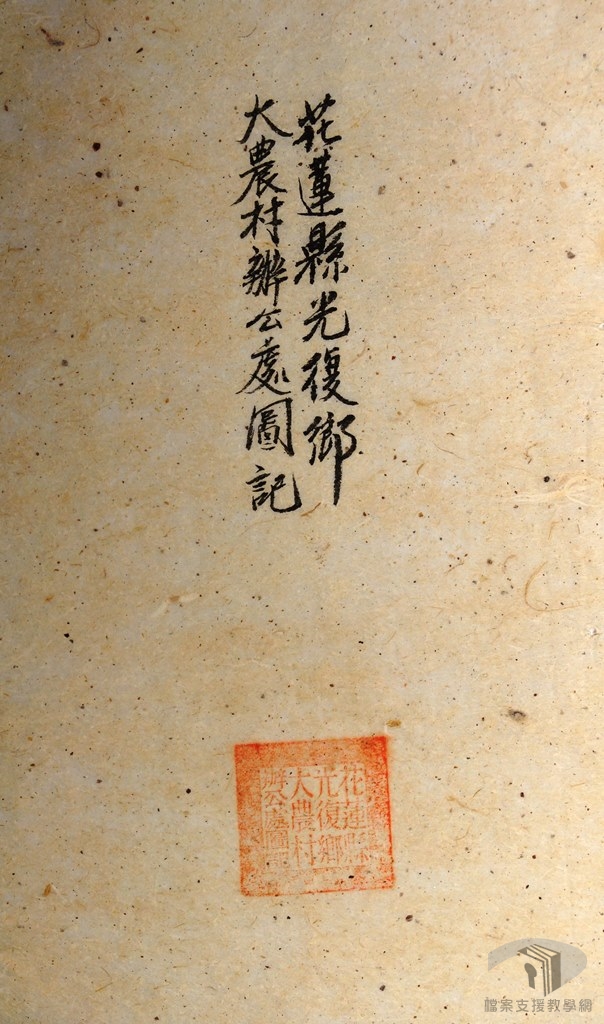 花蓮縣光復鄉
大農村辦公處圖記
花蓮縣
光復鄉
大農村
辦公處圖記
檔案支援教學網